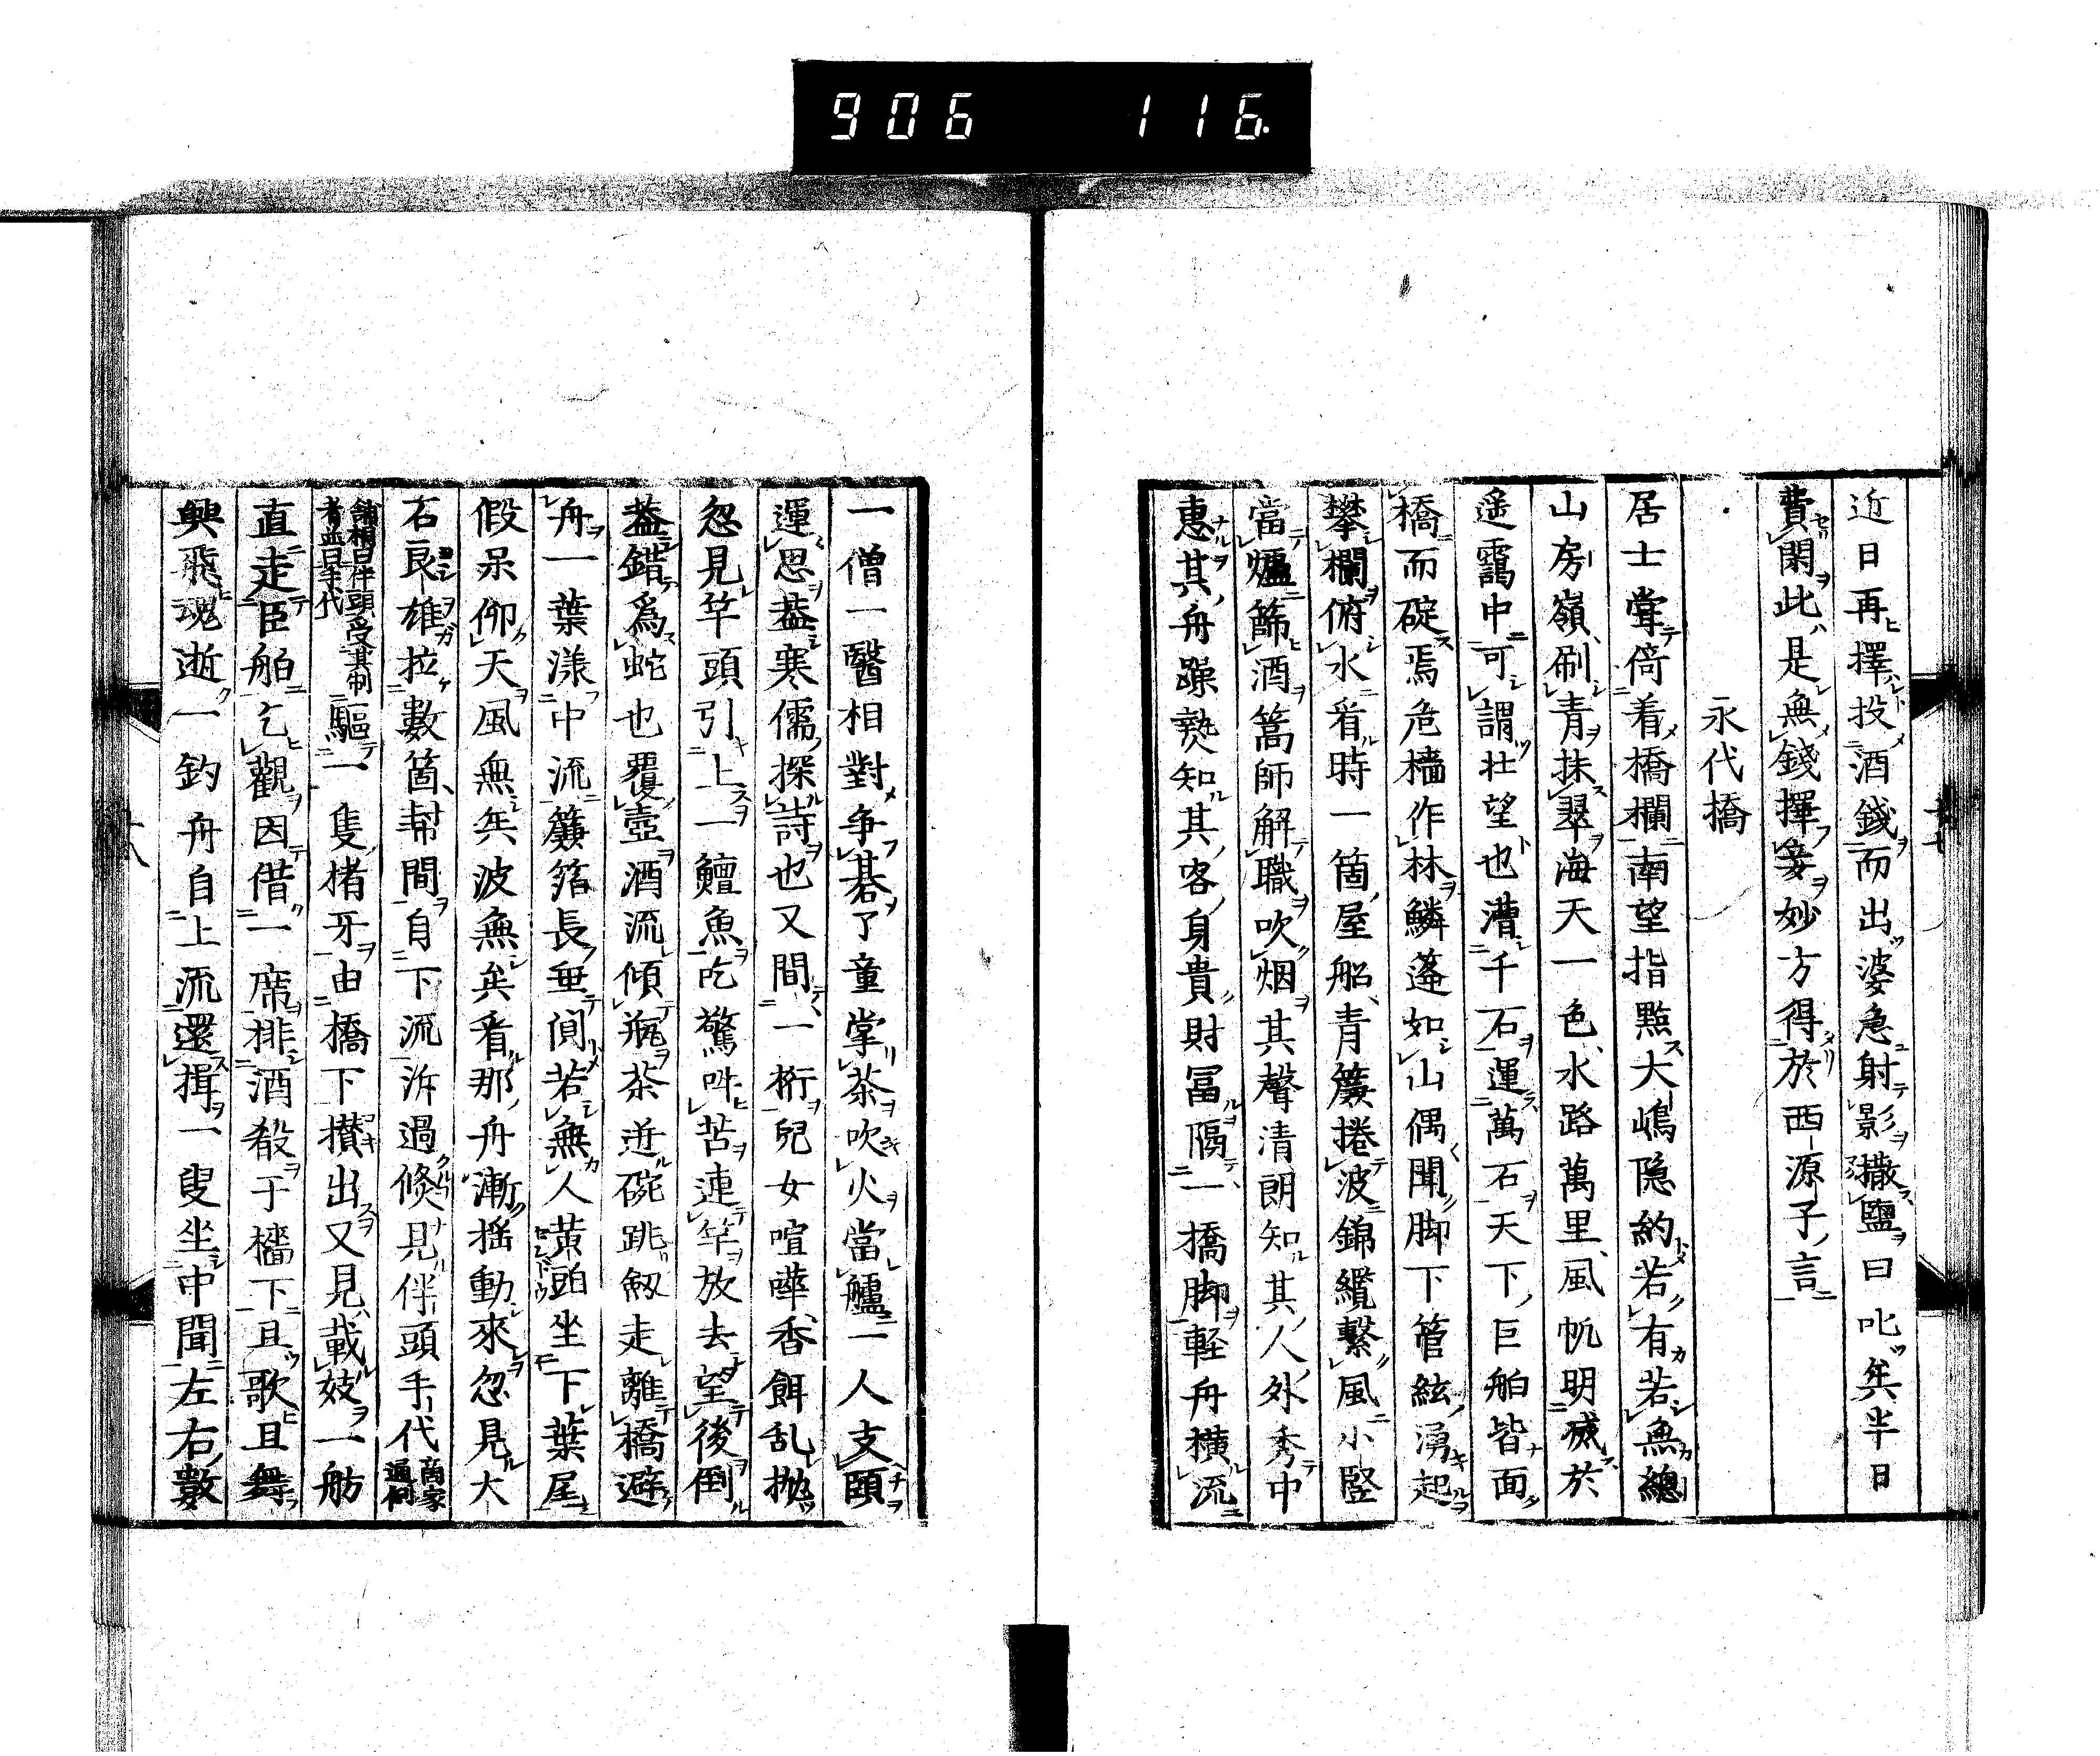 906 116.
近日再擇投酒錢而出婆急射影撒鹽曰叱矣半日
費閑此是無錢擇妾妙方得於西源子言
永代橋
居士嘗倚着橋欄南望指點大嶋隠約若有若無總
山房嶺刷青抹翠海天一色水路萬里風帆明滅於
遥靄中可謂壮望也漕千石運萬石天下巨舶皆面
橋而碇焉危檣作林鱗蓬如山偶聞脚下管絃湧起
攀欄俯水看時一箇屋船青簾捲波錦纜繫風小竪
當爐篩酒篙師解職吹烟其聲清朗知其人外秀中
惠其舟躁熱知其客身貴財冨隔一橋脚軽舟横流
一僧一醫相對争碁了童掌茶吹火當艫一人支頤
運思蓋寒儒探詩也又間一桁兒女喧嘩香餌乱抛
忽見竿頭引上一鱣魚吃驚呌苦連竿放去望後倒
蓋錯爲蛇也覆壺酒流傾瓶茶迸碗跳劔走離橋避
舟一葉漾中流簾箔長垂閴若無人黄頭坐下葉尾
假呆仰天風無矣波無矣看那舟漸揺動來忽見大
石良雄拉數箇幇間自下流泝過倏見伴頭手代商家通稱
舗相曰伴頭受其制者並曰手代驅一隻楮牙由橋下攅出又見載妓一舫
直走臣舶乞觀因借一席排酒殽于檣下且歌且舞
興飛魂逝一釣舟自上流還揖一叟坐中聞左右數